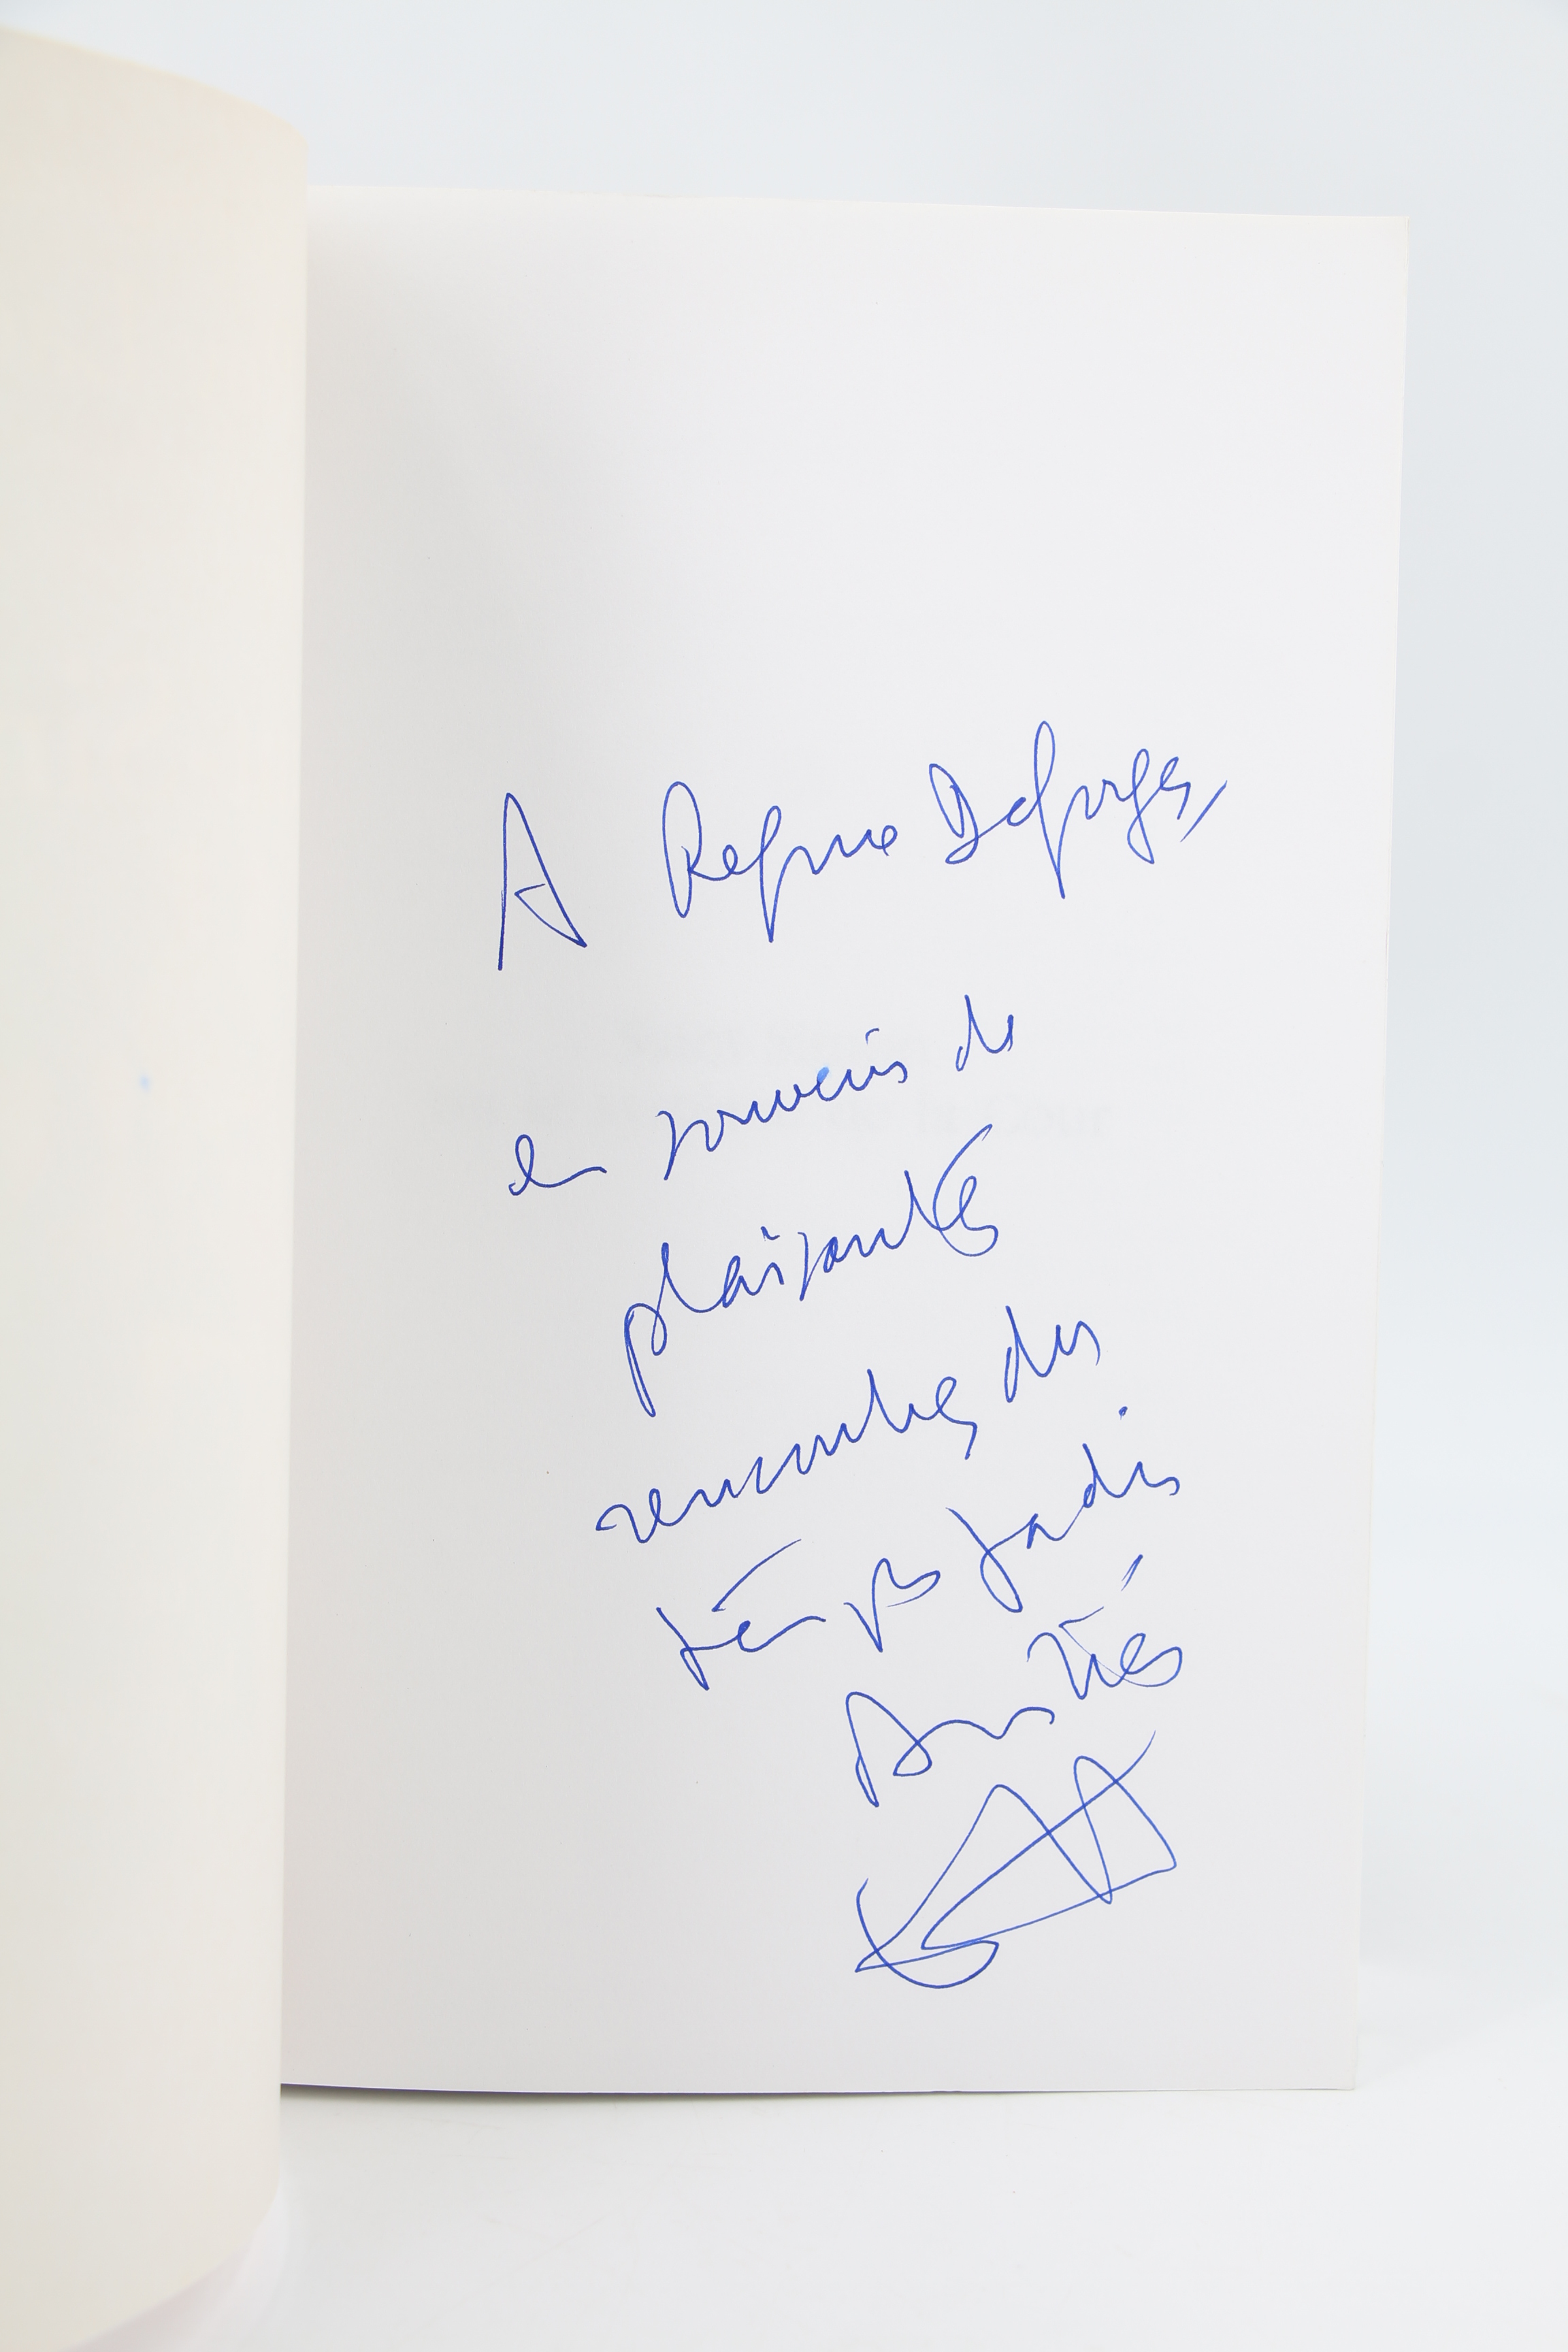 A Régine Deforges,
en souvenir de
plaisantes
rencontres des
temps jadis
Amitiés